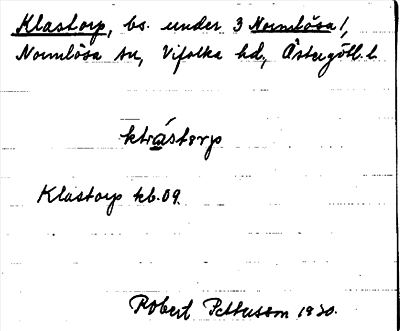 Klastorp, bs. under 3 Normlösa 1,
Normlösa sn, Vifolka hd, Östergötl. l.
klrástorp
Klastorp kb. 09.
Robert Pettersson 1930.